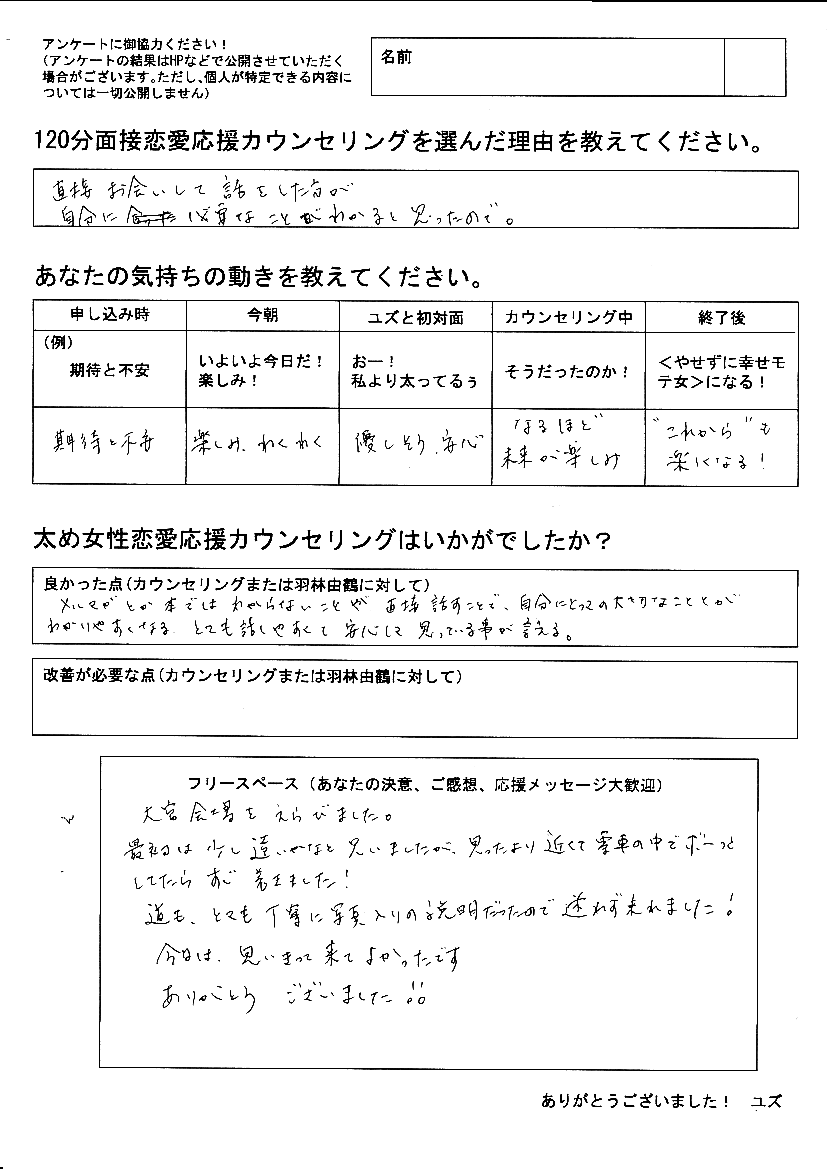 アンケートに御協力ください！
（アンケートの結果はHPなどで公開させていただく
場合がございます。ただし、個人が特定できる内容に
ついては一切公開しません）
名前
120分面接恋愛応援カウンセリングを選んだ理由を教えてください。
直接 お会いして 話をした方が
自分に 必要な ことが わかると 思ったので。
あなたの気持ちの動きを教えてください。
申し込み時 今朝 ユズと初対面 カウンセリング中 終了後
（例）
期待と不安
いよいよ今日だ！
楽しみ！
おー！
私より太ってるぅ
そうだったのか！
＜やせずに幸せモ
テ女＞になる！
期待と不安
楽しみ、わくわく
優しそう、安心
なるほど
未来が楽しみ
"これから"も
楽しくなる！
太め女性恋愛応援カウンセリングはいかがでしたか？
良かった点（カウンセリングまたは羽林由鶴に対して）
メルマガとか本では わからないことや 直接 話すことで、自分にとっての大切なことが
わかりやすくなる とても話しやすくて 安心して 思っている事が 言える。
改善が必要な点（カウンセリングまたは羽林由鶴に対して）
フリースペース（あなたの決意、ご感想、応援メッセージ大歓迎）
大宮会場を えらびました。
最初は 少し 遠いかなと 思いましたが、思ったより 近くて 電車の中でボーっと
してたら すぐ 着きました！
道も、とても 丁寧に写真入りの説明だったので 迷わず来れました！
今日は、思いきって 来て よかったです
ありがとう ございました!!
ありがとうございました！ ユズ